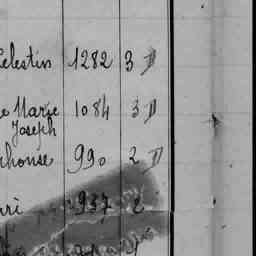 Celestin 1282 3 D
e Marie 1084 3 D
Joseph
phonse 990 2 D
ri 937 2